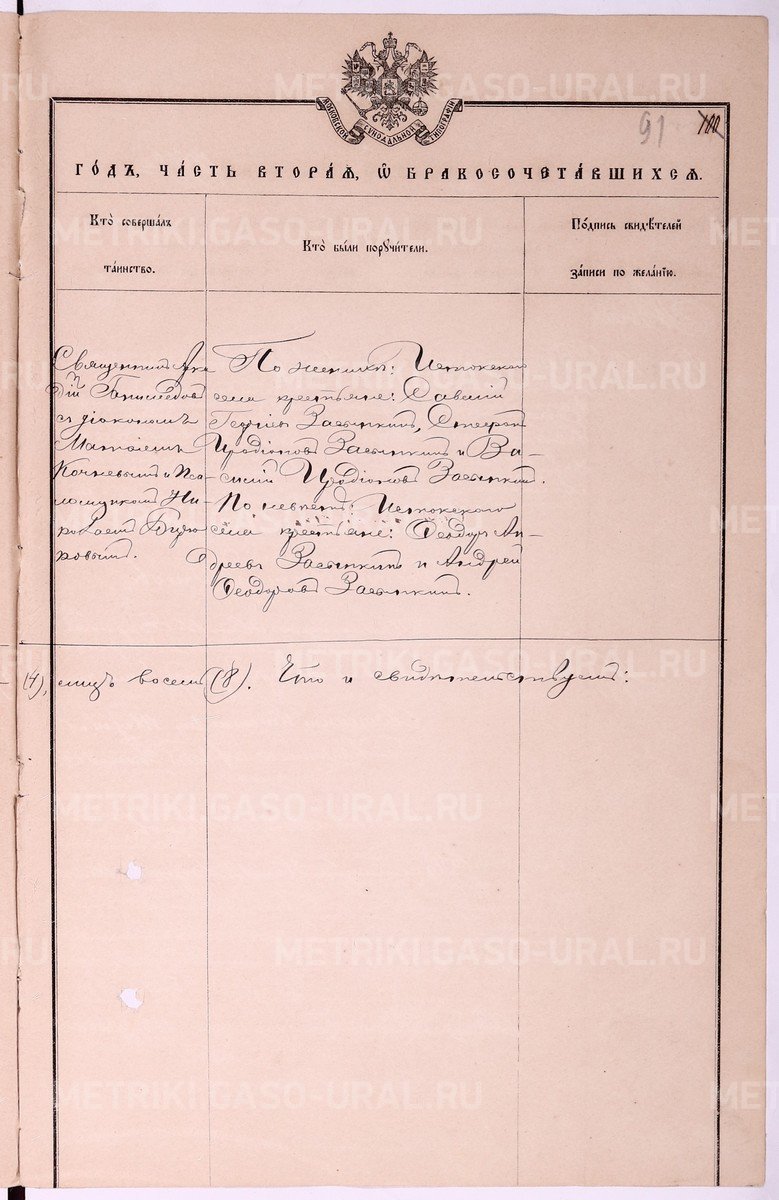 МОСКОВСКОЙ СѴНОДАЛЬНОЙ ТИПОГРАФІИ
91 100
ГО́ДЪ, ЧА́СТЬ ВТОРА́Ѧ, Ѽ БРАКОСОЧЕТА́ВШИХСѦ.
Кто̀ соверша́лъ
та́инство.
Кто̀ бы́ли порꙋчи́тели.
По́дпись свидѣ́телей
за́писи по жела́нїю.
Священникъ Арка
дій
съ діакономъ
Матѳіемъ
Кочневымъ и Пса-
ломщикомъ Ни-
колаемъ Бирю
ковымъ.
По женихѣ: Истокскаго
села крестьяне: Савелій
Георгіевъ Засыпкинъ, Стефанъ
Иродіоновъ Засыпкинъ и Ва-
силій Иродіоновъ Засыпкинъ.
По невѣстѣ: Истокскаго
села крестьяне: Ѳеодоръ Ан-
дреевъ Засыпкинъ и Андрей
Ѳеодоровъ Засыпкинъ.
(4), лицъ восемь (8). Что и свидѣтельствуемъ:
METRIKI.GASO-URAL.RU